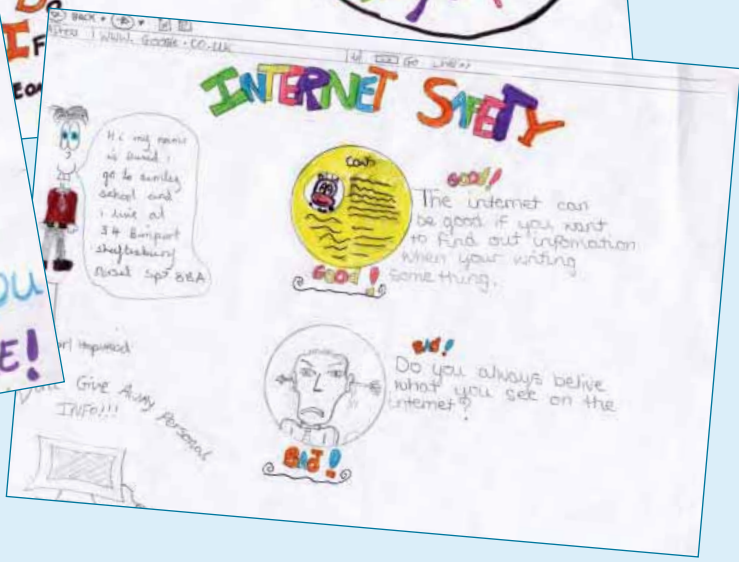 BACK
WWW. GOOGLE.CO.UK
GO
INTERNET SAFETY
Hi my name
is
go to
school and
i live at
34 Bimport
Shaftesbury
Sp7 8BA
Cows
GOOD!
GOOD!
The internet can
be good if you want
to find out infomation
when your writing
something.
BAD!
BAD!
Do you always belive
what you see on the
internet?
Give Away Personal
INFO!!!
OU
E!